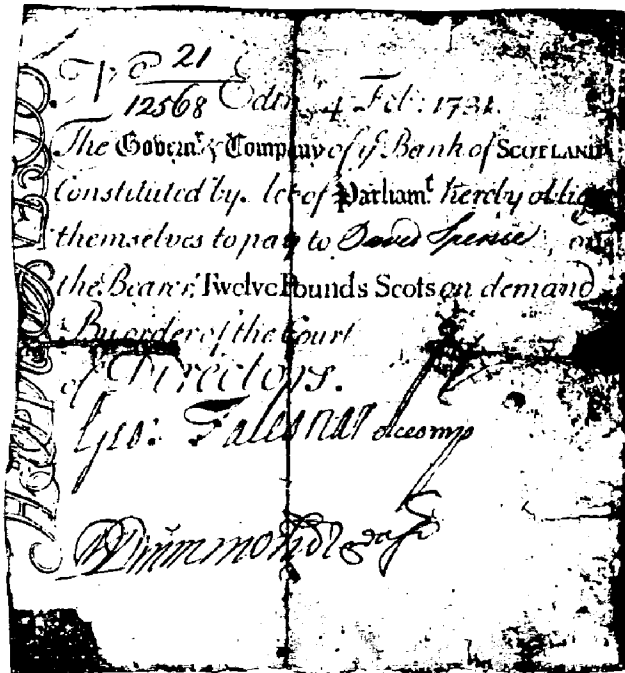 No 21
12568 Edinr 4 Feb: 1731.
The Governr & Company of ye Bank of SCOTLAND
Constituted by Act of Parliamt hereby oblige
themselves to pay to David Spense, or
the Bearer, Twelve Pounds Scots on demand
By order of the Court
of Directors.
Geo: Falconar Accomp
Drummond